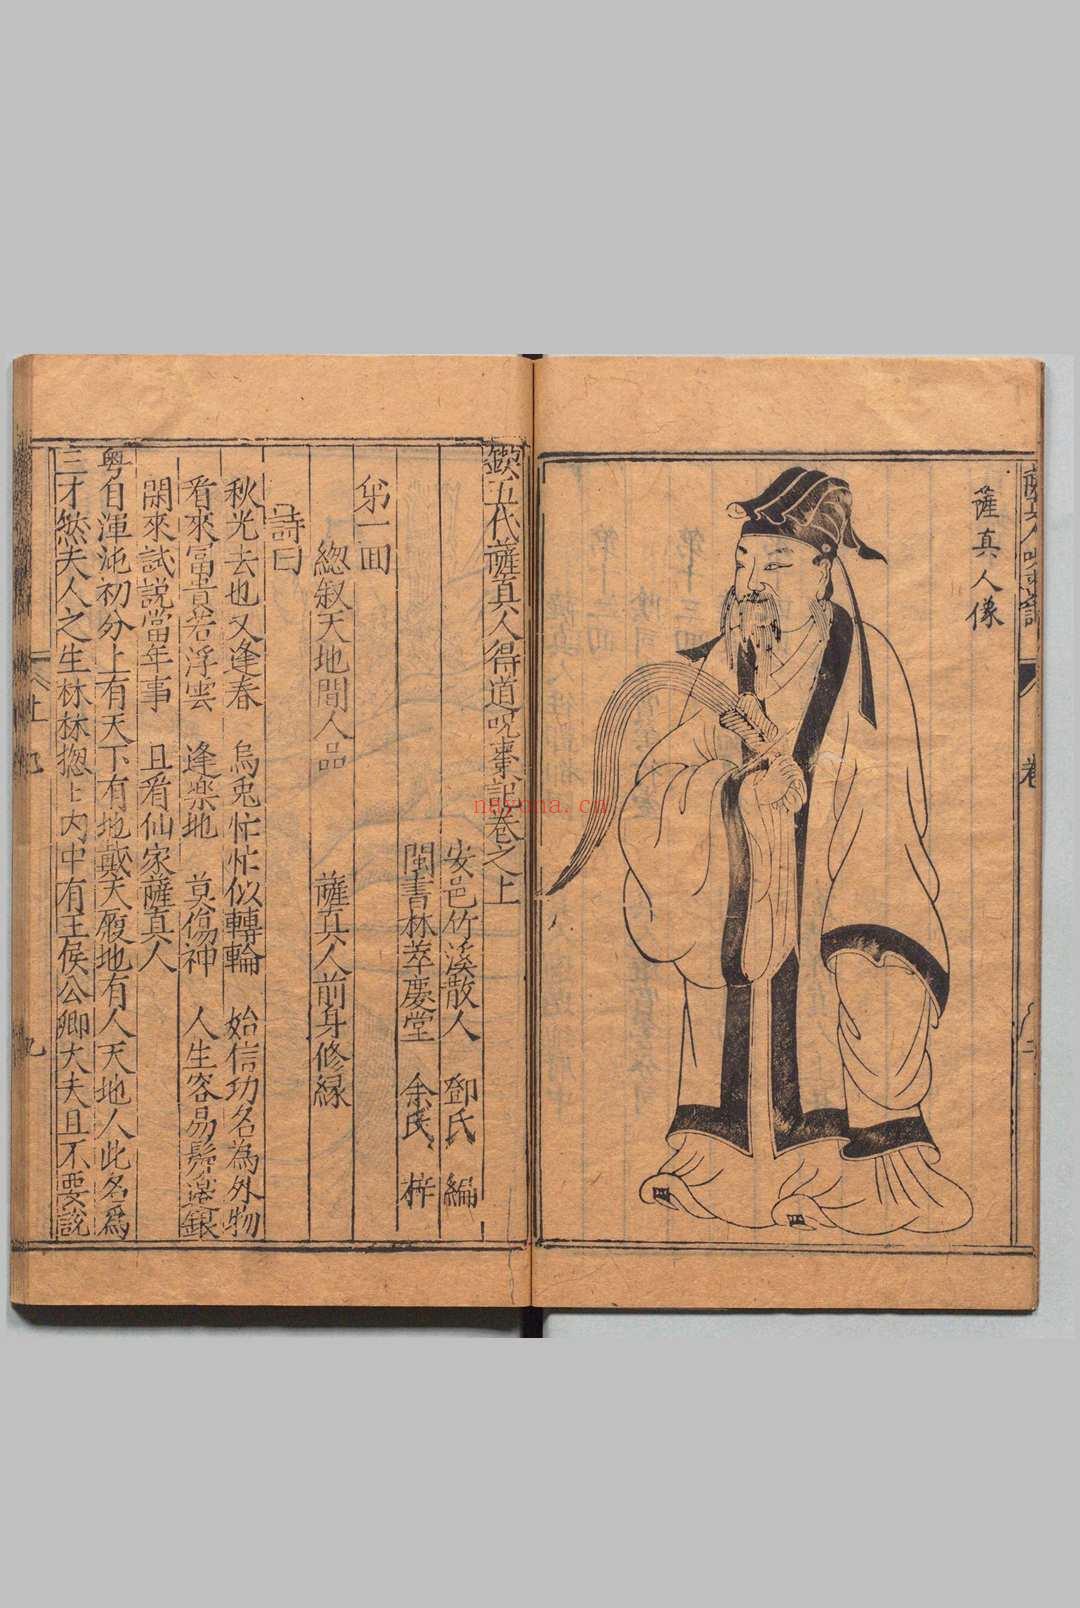 薩真人像
鍥五代薩真人得道呪棗記卷之上
安邑竹溪散人 鄧氏 編
閩書林萃慶堂 余氏 梓
第一回
緫叙天地間人品 薩真人前身修緣
詩曰
秋光去也又逢春 烏兎忙忙似轉輪 始信功名為外物
看來冨貴若浮雲 逢樂地 莫傷神 人生容易鬂邊銀
閑來試説當年事 且看仙家薩真人
粤自渾沌初分上有天下有地戴天履地有人天地人此名爲
三才然夫人之生林林揔士内中有王侯公卿大夫且不要説
nayona.cn